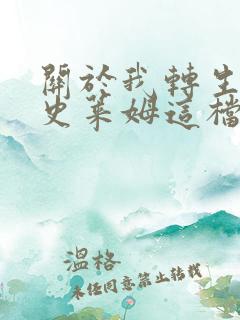 關於我轉生
史萊姆這檔
溫格
未經同意禁止轉載